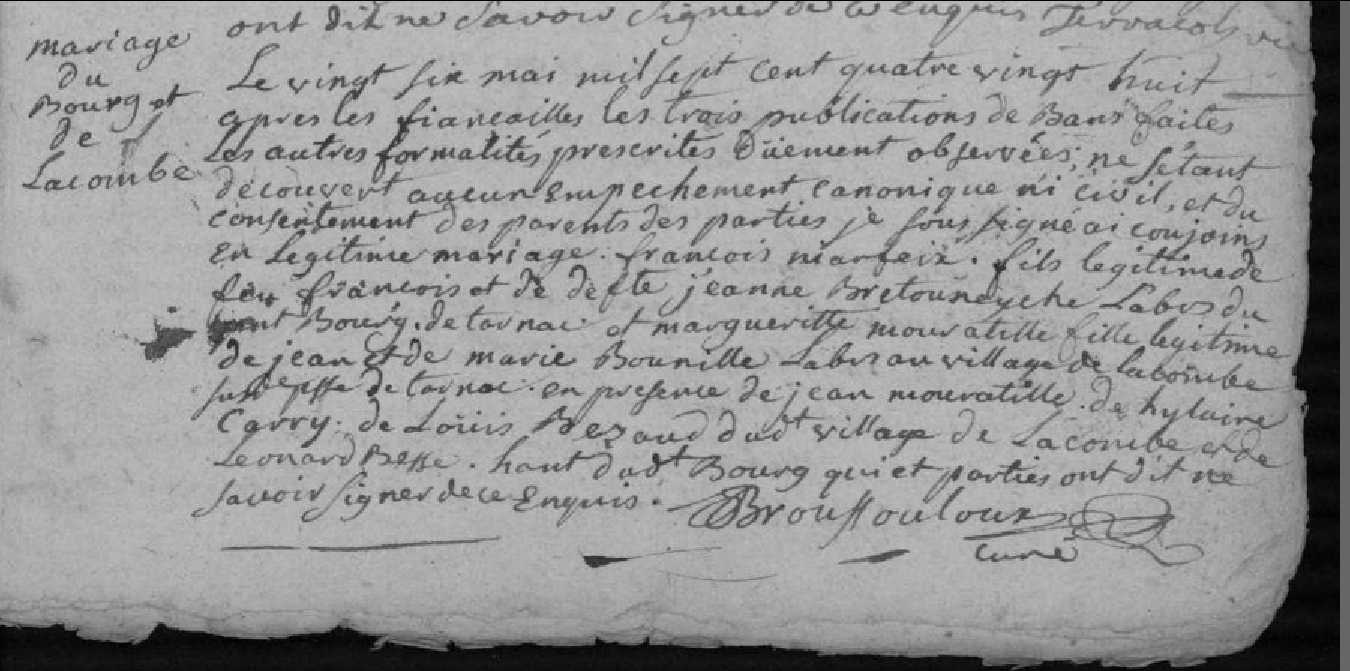 ont dit ne savoir signer de ce enquis
mariage
du
Bourg et
de
Lacombe
Le vingt six mai mil sept cent quatre vingt huit
apres les fiancailles les trois publications de Bans faites
Les autres formalités prescrites düement observées, ne s'etant
decouvert aucun empechement canonique ni civil, et du
consentement des parents des parties je soussigné ai conjoins
en Legitime mariage. francois marfeix. fils legitime de
feu francois et de defte jeanne Bretouneyche Labrs du
Bourg. de tarnac et margueritte mouratille fille legitime
de jean et de marie Bounille Labrs au village de lacombe
susd psse de tarnac. en presence de jean mouratille. de hylaire
Carry. de Loüis Bezaud dudt village de Lacombe et de
Leonard Besse. hant dudt Bourg qui et parties ont dit ne
savoir signer de ce Enquis.
Broussouloux
Curé